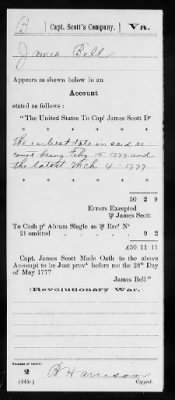 B | Capt. Scott's Company. | Va.
James Bell
Appears as shown below in an
Account
stated as follows:
"The United States To Capt James Scott Dr
* * * * * * *
The earliest date in said ac
count being Feby 5 1777 and
the latest Mch 4 - 1777
* * * * * * *
50 2 9
Errors Excepted
℔ James Scott
To Cash pd Abram Slagle as ℔ Rect No
21 omitted 9 2
£50 11 11
Capt. James Scott Made Oath to the above
Account to be Just provd before me the 28th Day
of May 1777
James Bell"
(Revolutionary War.)
Number of roll:
2
B Harrison
(535c) Copyist.